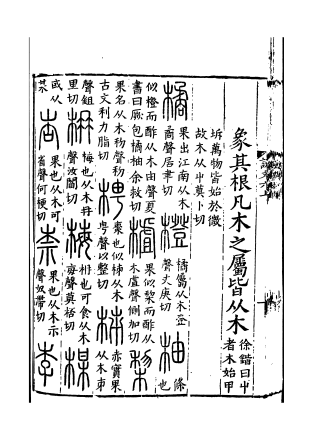 象其根凡木之屬皆从木 徐鍇曰屮者木始甲
坼萬物皆始於微故木从屮莫卜切
橘 果出江南从木矞聲居聿切 橙 橘屬从木登聲丈庚切 柚 條也
似橙而酢从木由聲夏書曰厥包橘柚余救切 樝 果似棃而酢从木虘聲側加切 棃
果名从木𥝢聲𥝢古文利力脂切 梬 棗也似柹从木甹聲以整切 柹 赤實果从木𠂔
聲鉏里切 枏 梅也从木冄聲汝閻切 梅 枏也可食从木每聲莫桮切 楳
或从某 杏 果也从木可省聲何梗切 柰 果也从木示聲奴帶切 李